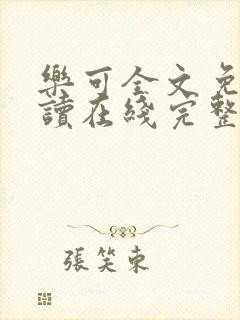 樂可全文免
讀在綫完整
張笑東